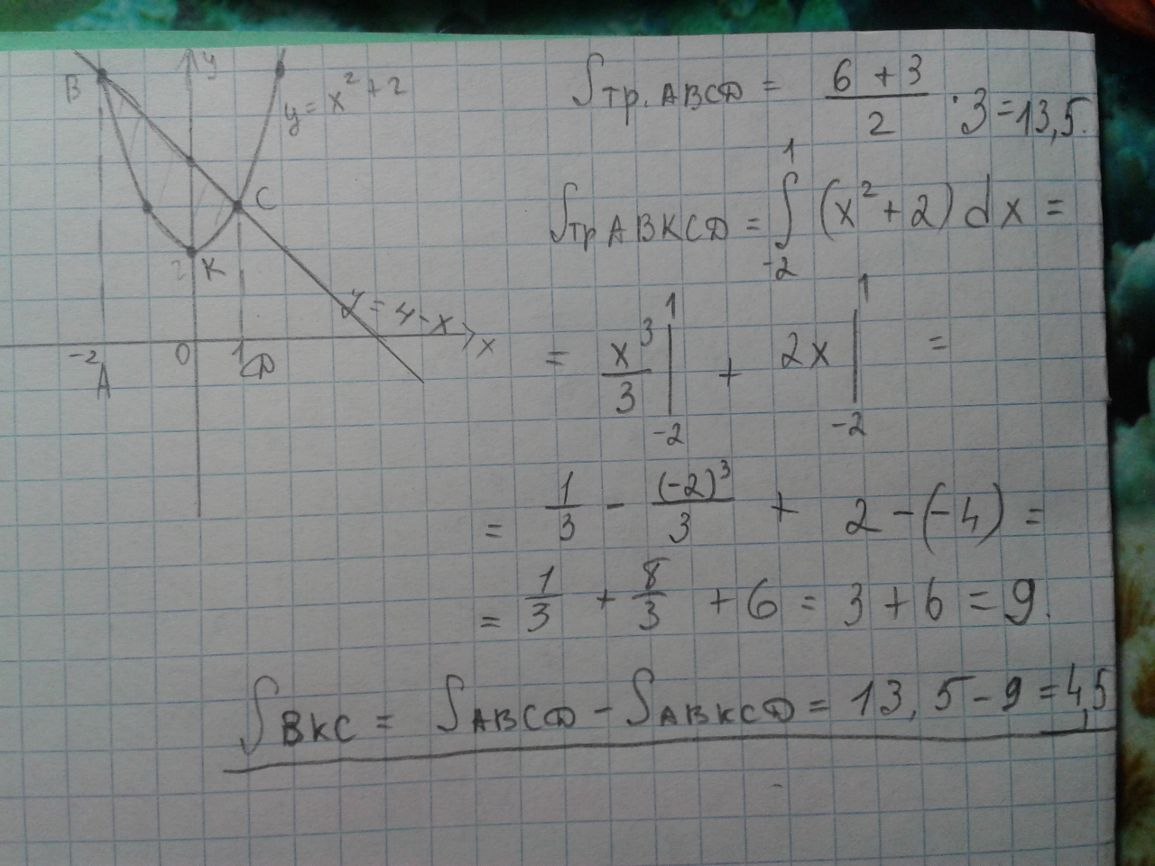 B
y
y = x² + 2
C
2 K
y = 4 - x
-2 0 1 D x
A
Sтр. ABCD = (6 + 3)/2 · 3 = 13,5.
Sтр ABKCD = ∫₋₂¹ (x² + 2) dx =
= x³/3 |₋₂¹ + 2x |₋₂¹ =
= 1/3 - (-2)³/3 + 2 - (-4) =
= 1/3 + 8/3 + 6 = 3 + 6 = 9.
SBKC = SABCD - SABKCD = 13,5 - 9 = 4,5